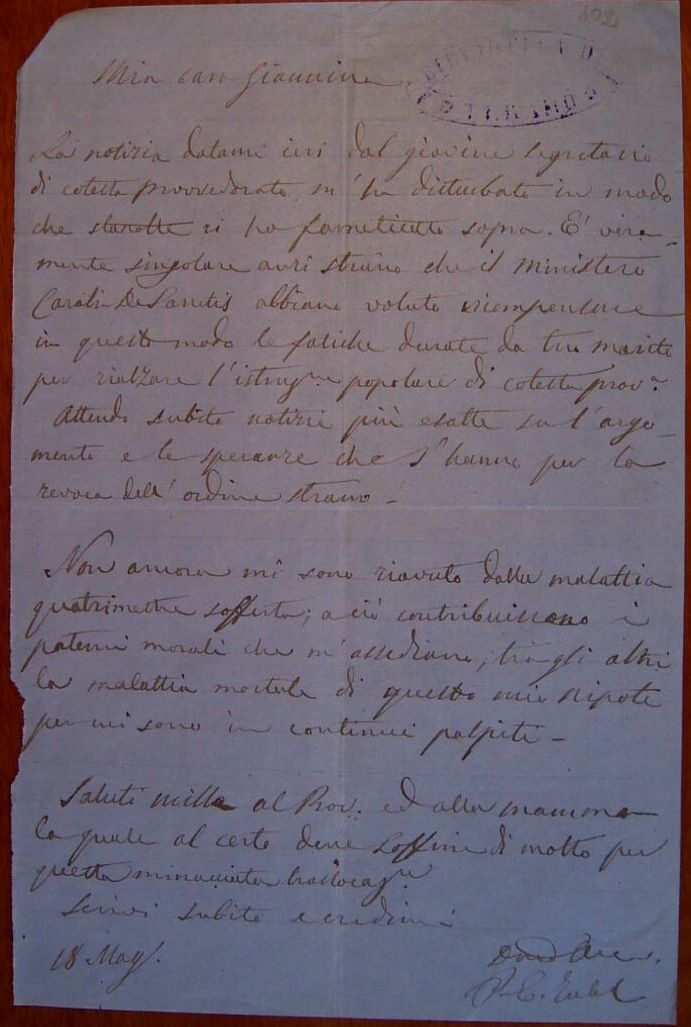 102
Mia cara Giannina
La notizia datami ieri dal giovine segretario
di cotesta provvedorato, m'ha disturbato in modo
che stanotte vi ho farneticato sopra. E' vera-
mente singolare anzi strano che il Ministero
Cairoli-DeSanctis abbiano voluto ricompensare
in questo modo le fatiche durate da tuo marito
per rialzare l'istruz.ne popolare di cotesta prov.a
Attendo subito notizie più esatte su l'argo-
mento e le speranze che s'hanno per la
revoca dell'ordine strano -
Non ancora mi sono riavuto dalla malattia
quatrimestre sofferta; a ciò contribuiscono i
patemi morali che m'assediano, tra gli altri
la malattia mortale di questo mio nipote
per cui sono in continui palpiti -
Saluti mille al Prov. ed alla mamma
la quale al certo deve soffrire di molto per
questa minacciata traslocaz.ne
Scrivi subito e credimi
18 Mag.